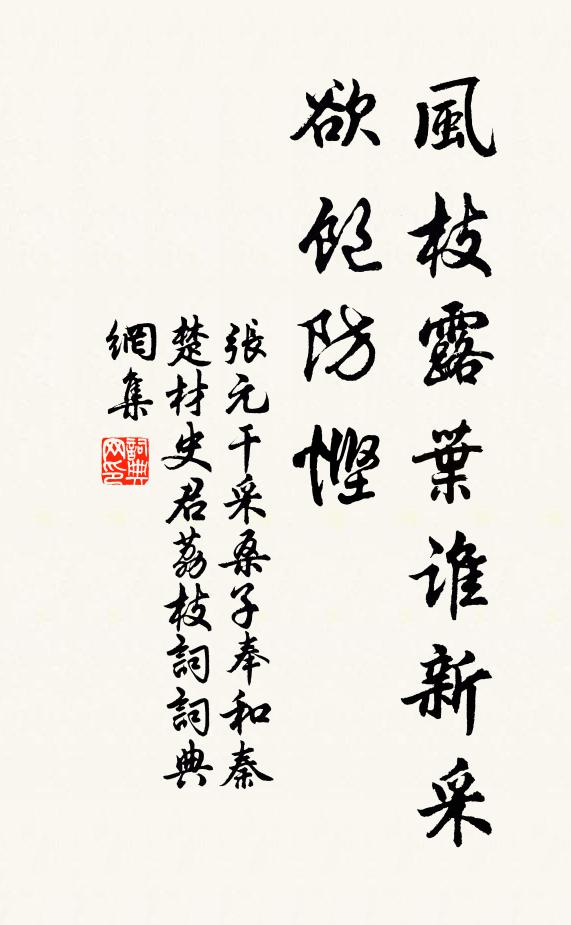 風枝露葉誰新采
欲飽防慳
張元干采桑子奉和秦
楚材史君荔枝詞詞典
網集
詞典网印